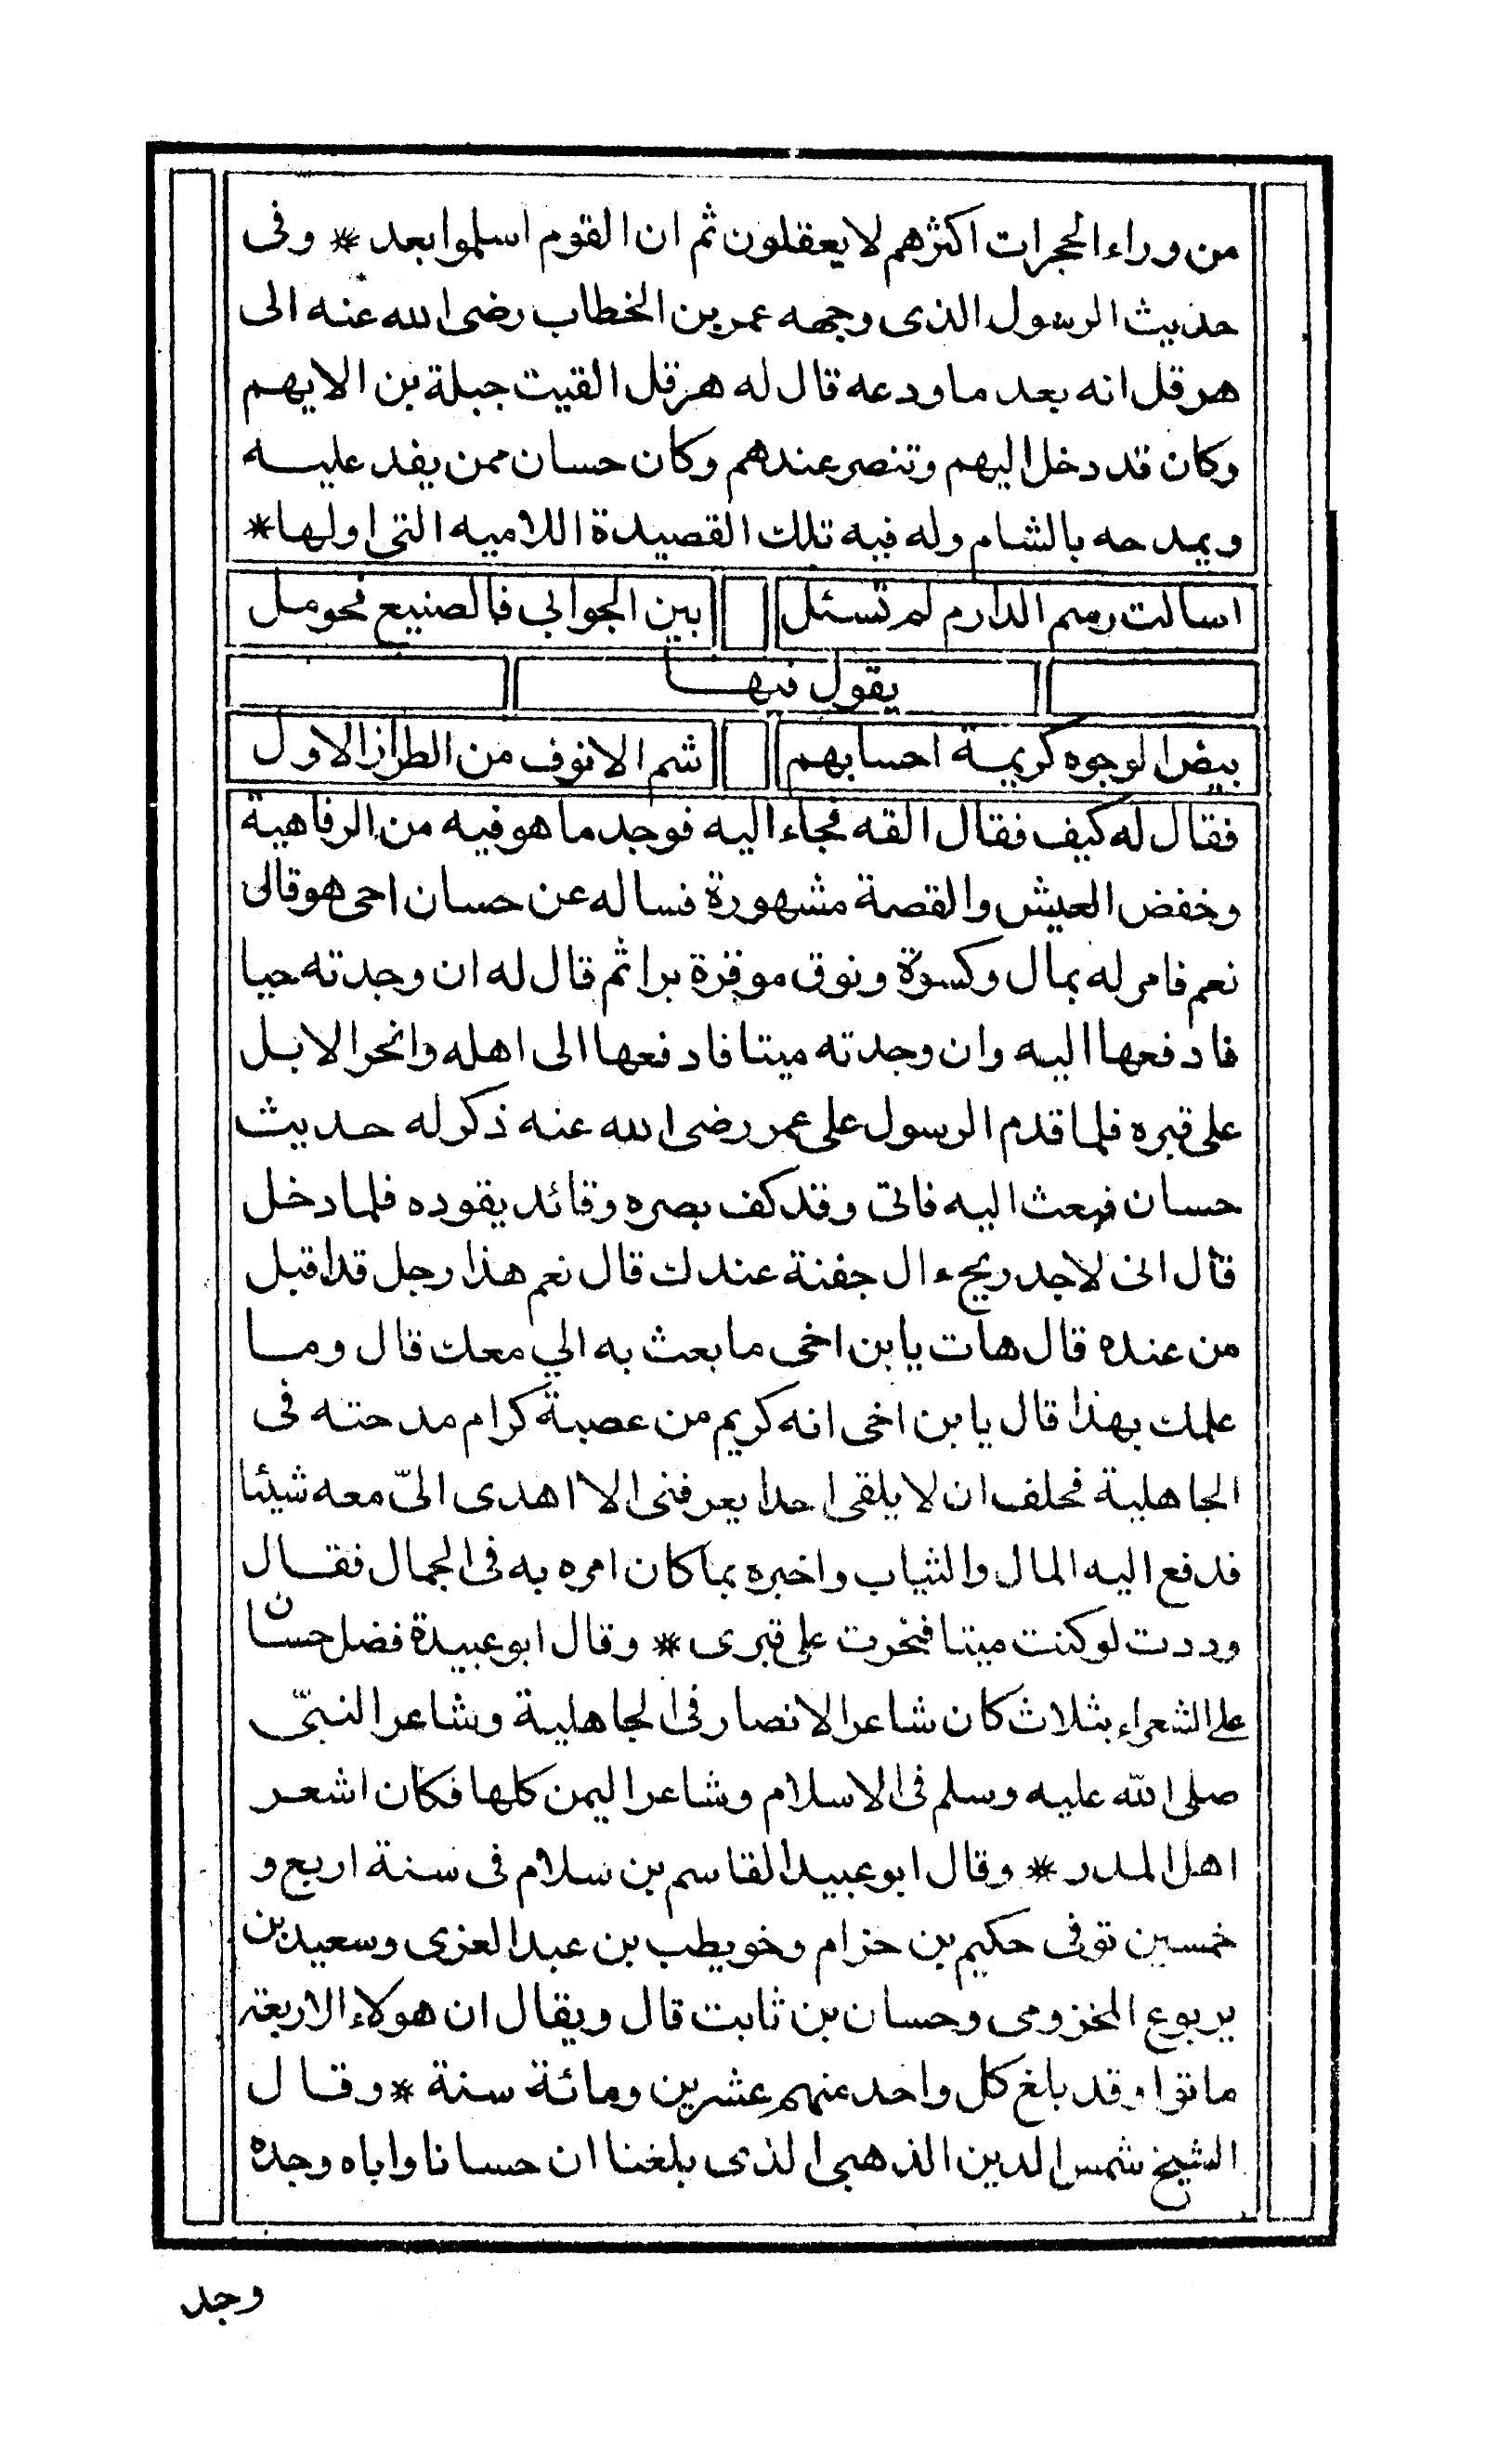 من وراء الحجرات اكثرهم لا يعقلون ثم ان القوم اسلموا بعد * وفى
حديث الرسول الذى وجهه عمر بن الخطاب رضى الله عنه الى
هرقل انه بعد ما ودعه قال له هرقل القيت جبلة بن الايهم
وكان قد دخل اليهم وتنصر عندهم وكان حسان ممن يفد عليه
ويمدحه بالشام وله فيه تلك القصيدة اللاميه التى اولها *
اسالت رسم الدار م لم تسئل بين الجوابي فالصنيع فحومل
يقول فيها
بيض الوجوه كريمة احسابهم شم الانوف من الطراز الاول
فقال له كيف فقال القه فجاء اليه فوجد ما هو فيه من الرفاهية
وخفض العيش والقصة مشهورة فساله عن حسان احى هو قال
نعم فامر له بمال وكسوة ونوق موقرة برا ثم قال له ان وجدته حيا
فادفعها اليه وان وجدته ميتا فادفعها الى اهله وانحر الابل
على قبره فلما قدم الرسول على عمر رضى الله عنه ذكر له حديث
حسان فبعث اليه فاتى وقد كف بصره وقائد يقوده فلما دخل
قال انى لاجد ريح ء ال جفنة عندك قال نعم هذا رجل قد اقبل
من عنده قال هات يا بن اخى ما بعث به الي معك قال وما
علمك بهذا قال يا بن اخى انه كريم من عصبة كرام مدحته فى
الجاهلية فحلف ان لا يلقى احدا يعرفنى الا اهدى الىّ معه شيئا
فدفع اليه المال والثياب واخبره بما كان امره به فى الجمال فقال
وددت لو كنت ميتا فنحرت على قبرى * وقال ابو عبيدة فضل حسان
على الشعراء بثلاث كان شاعر الانصار فى الجاهلية وشاعر النبىّ
صلى الله عليه وسلم فى الاسلام وشاعر اليمن كلها فكان اشعر
اهل المدر * وقال ابو عبيد القاسم بن سلام فى سنة اربع و
خمسين توفى حكيم بن حزام وخويطب بن عبد العزى وسعيد بن
يربوع المخزومى وحسان بن ثابت قال ويقال ان هولاء الاربعة
ماتوا وقد بلغ كل واحد منهم عشرين ومائة سنة * وقال
الشيخ شمس الدين الذهبى الذى بلغنا ان حسانا واباه وجده
وجد